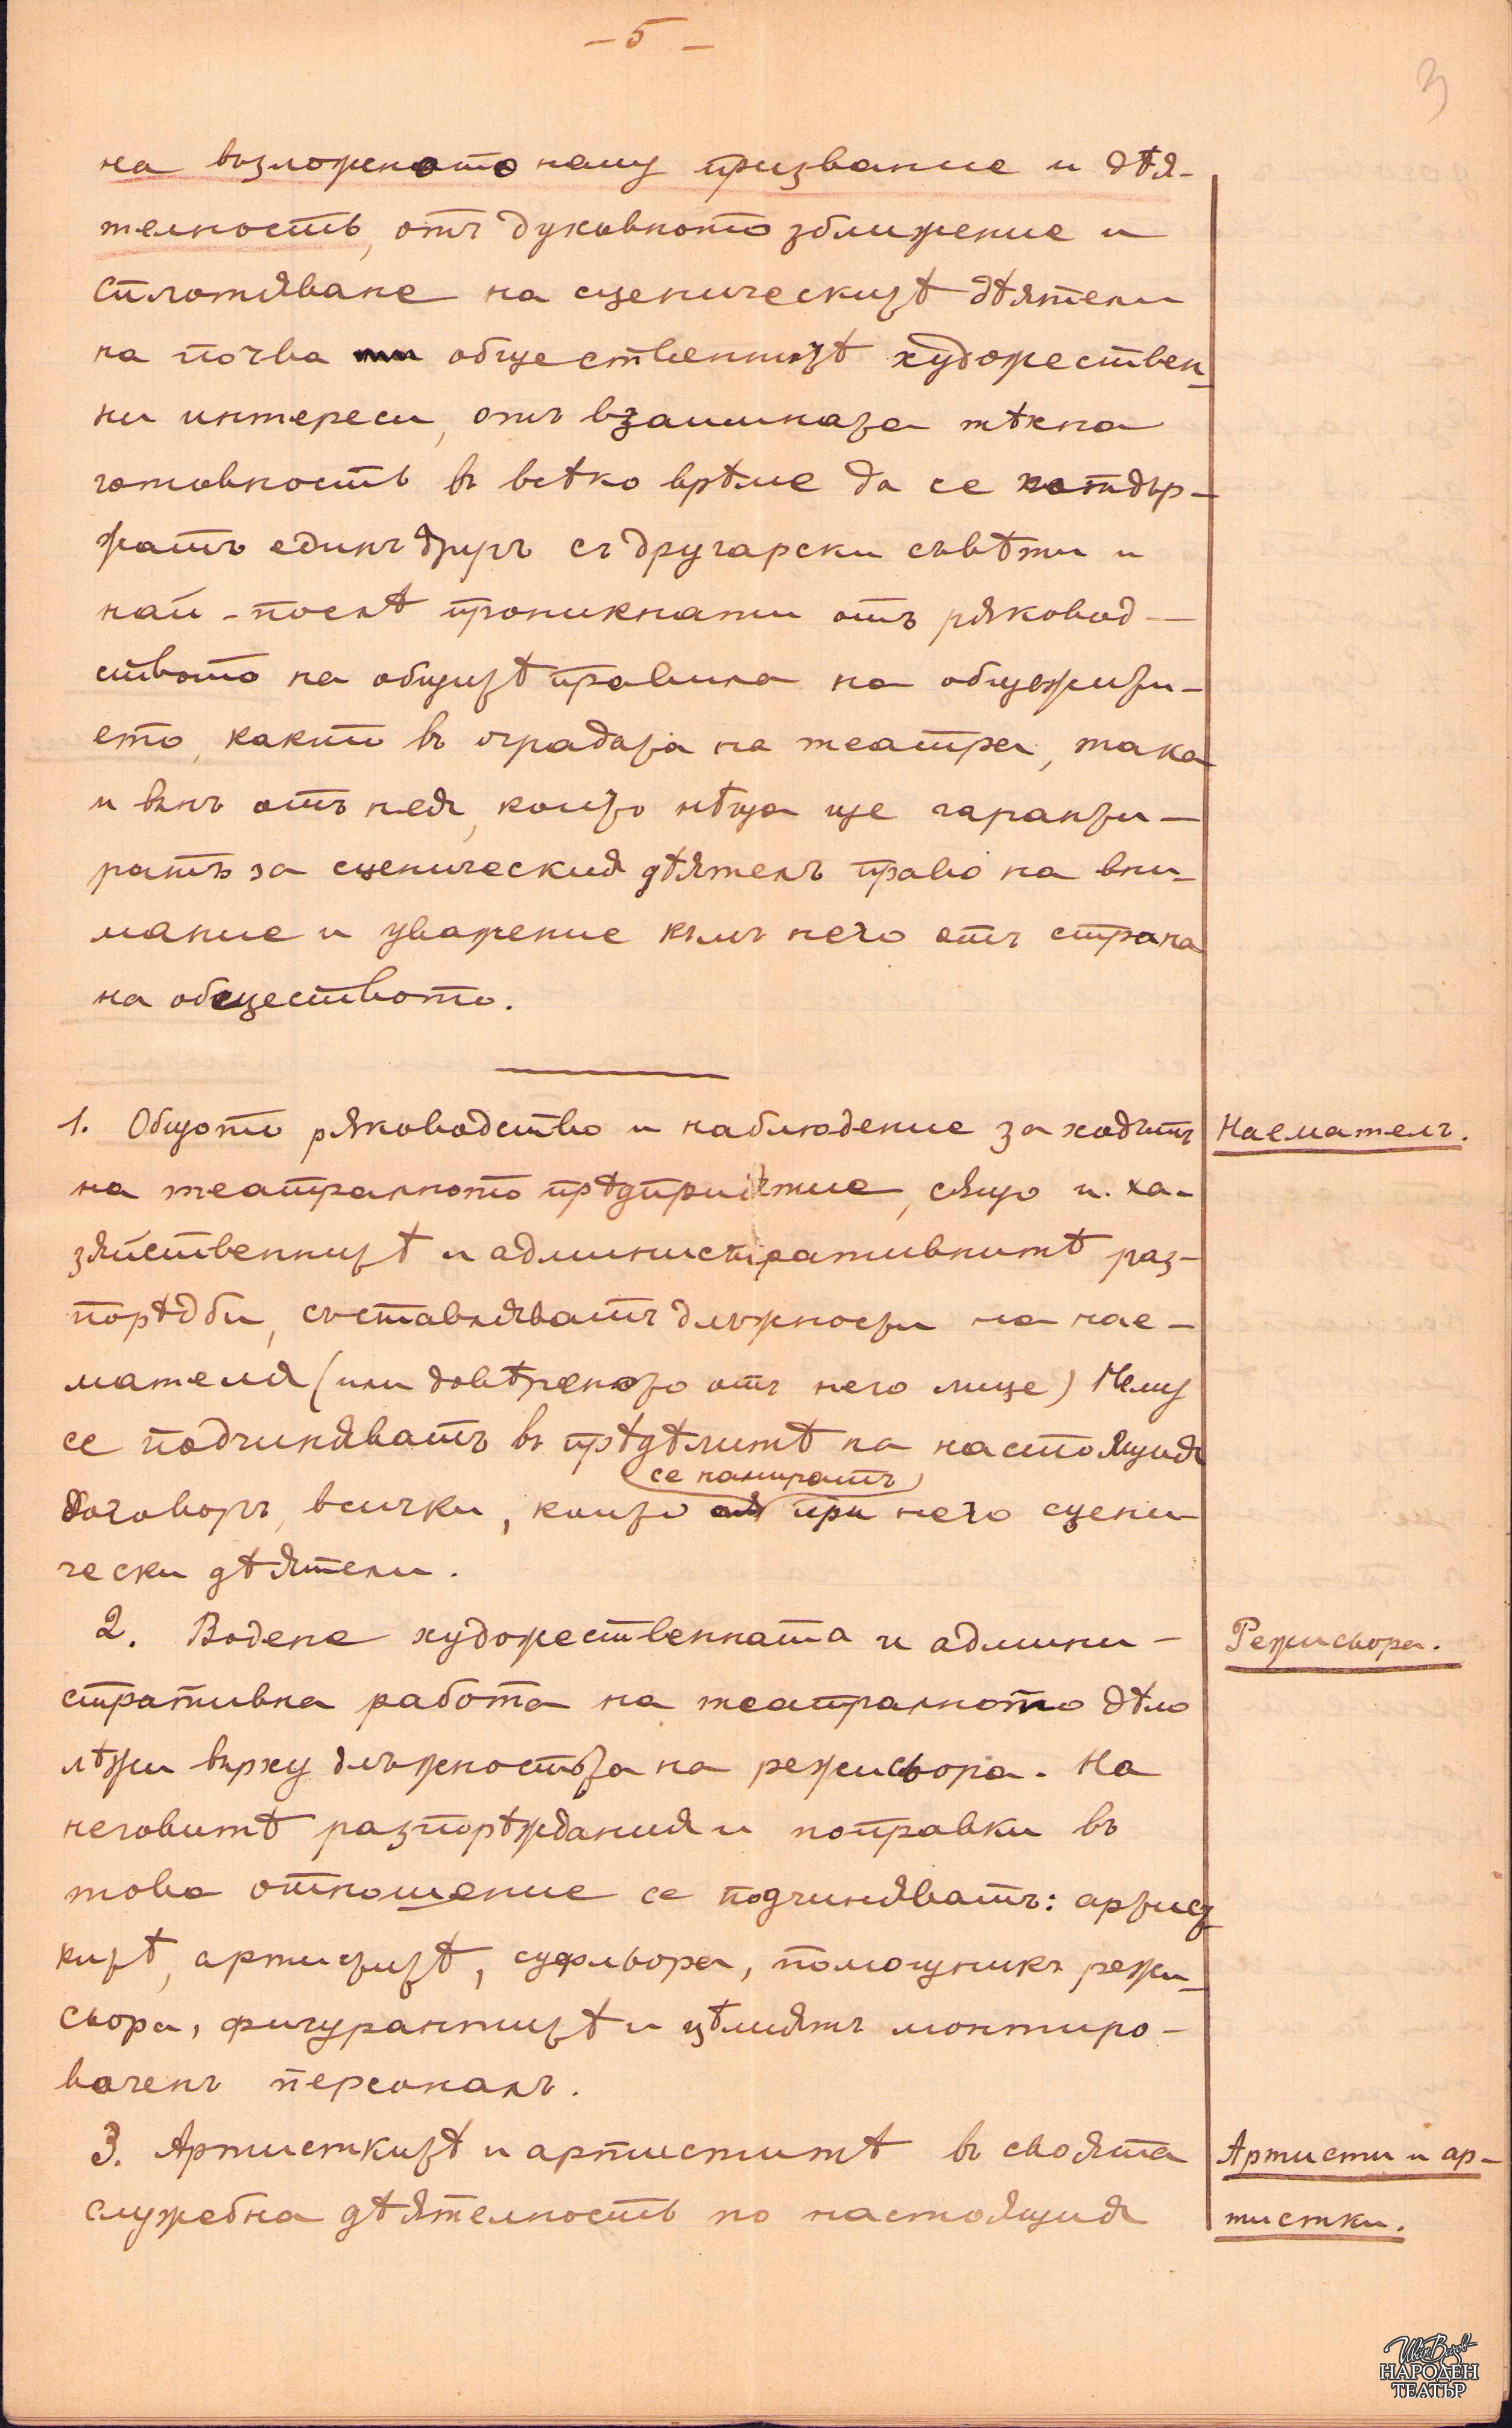 – 5 –
3
на възложеното нему призвание и дѣя-
телность, отъ духовното зближение и
сплотяване на сценическитѣ дѣятели
на почва общественнитѣ художествен-
ни интереси, отъ взаимната тѣхна
готовность въ всѣко врѣме да се подър-
жатъ единъ другъ съ другарски съвѣти и
най-послѣ проникнати отъ рѫковод-
ството на общитѣ правила на общежити-
ето, както въ оградата на театра, така
и вънъ отъ нея, които нѣща ще гаранти-
ратъ за сценическия дѣятель право на вни-
мание и уважение къмъ него отъ страна
на обществото.
1. Общото рѫководство и наблюдение за ходътъ
Наемателъ.
на театралното прѣдприятие, сѫщо и ха-
зяйственнитѣ и административнитѣ раз-
порѣдби, съставляватъ длъжности на нае-
мателя (или довѣреното отъ него лице) Нему
се подчиняватъ въ прѣдѣлитѣ на настоящия
се намиратъ
договоръ, всички, които при него сцени-
чески дѣятели.
2. Водене художественната и админи-
Режисьора.
стративна работа на театралното дѣло
лѣжи върху длъжностьта на режисьора. На
неговитѣ разпорѣждания и поправки въ
това отношение се подчиняватъ: артист-
китѣ, артиститѣ, суфльора, помощникъ режи-
сьора, фигурантитѣ и цѣлиятъ монтиро-
ваченъ персоналъ.
3. Артисткитѣ и артиститѣ въ своята
Артисти и ар-
служебна дѣятелность по настоящия
тистки.
Иван Вазов
НАРОДЕН
ТЕАТЪР